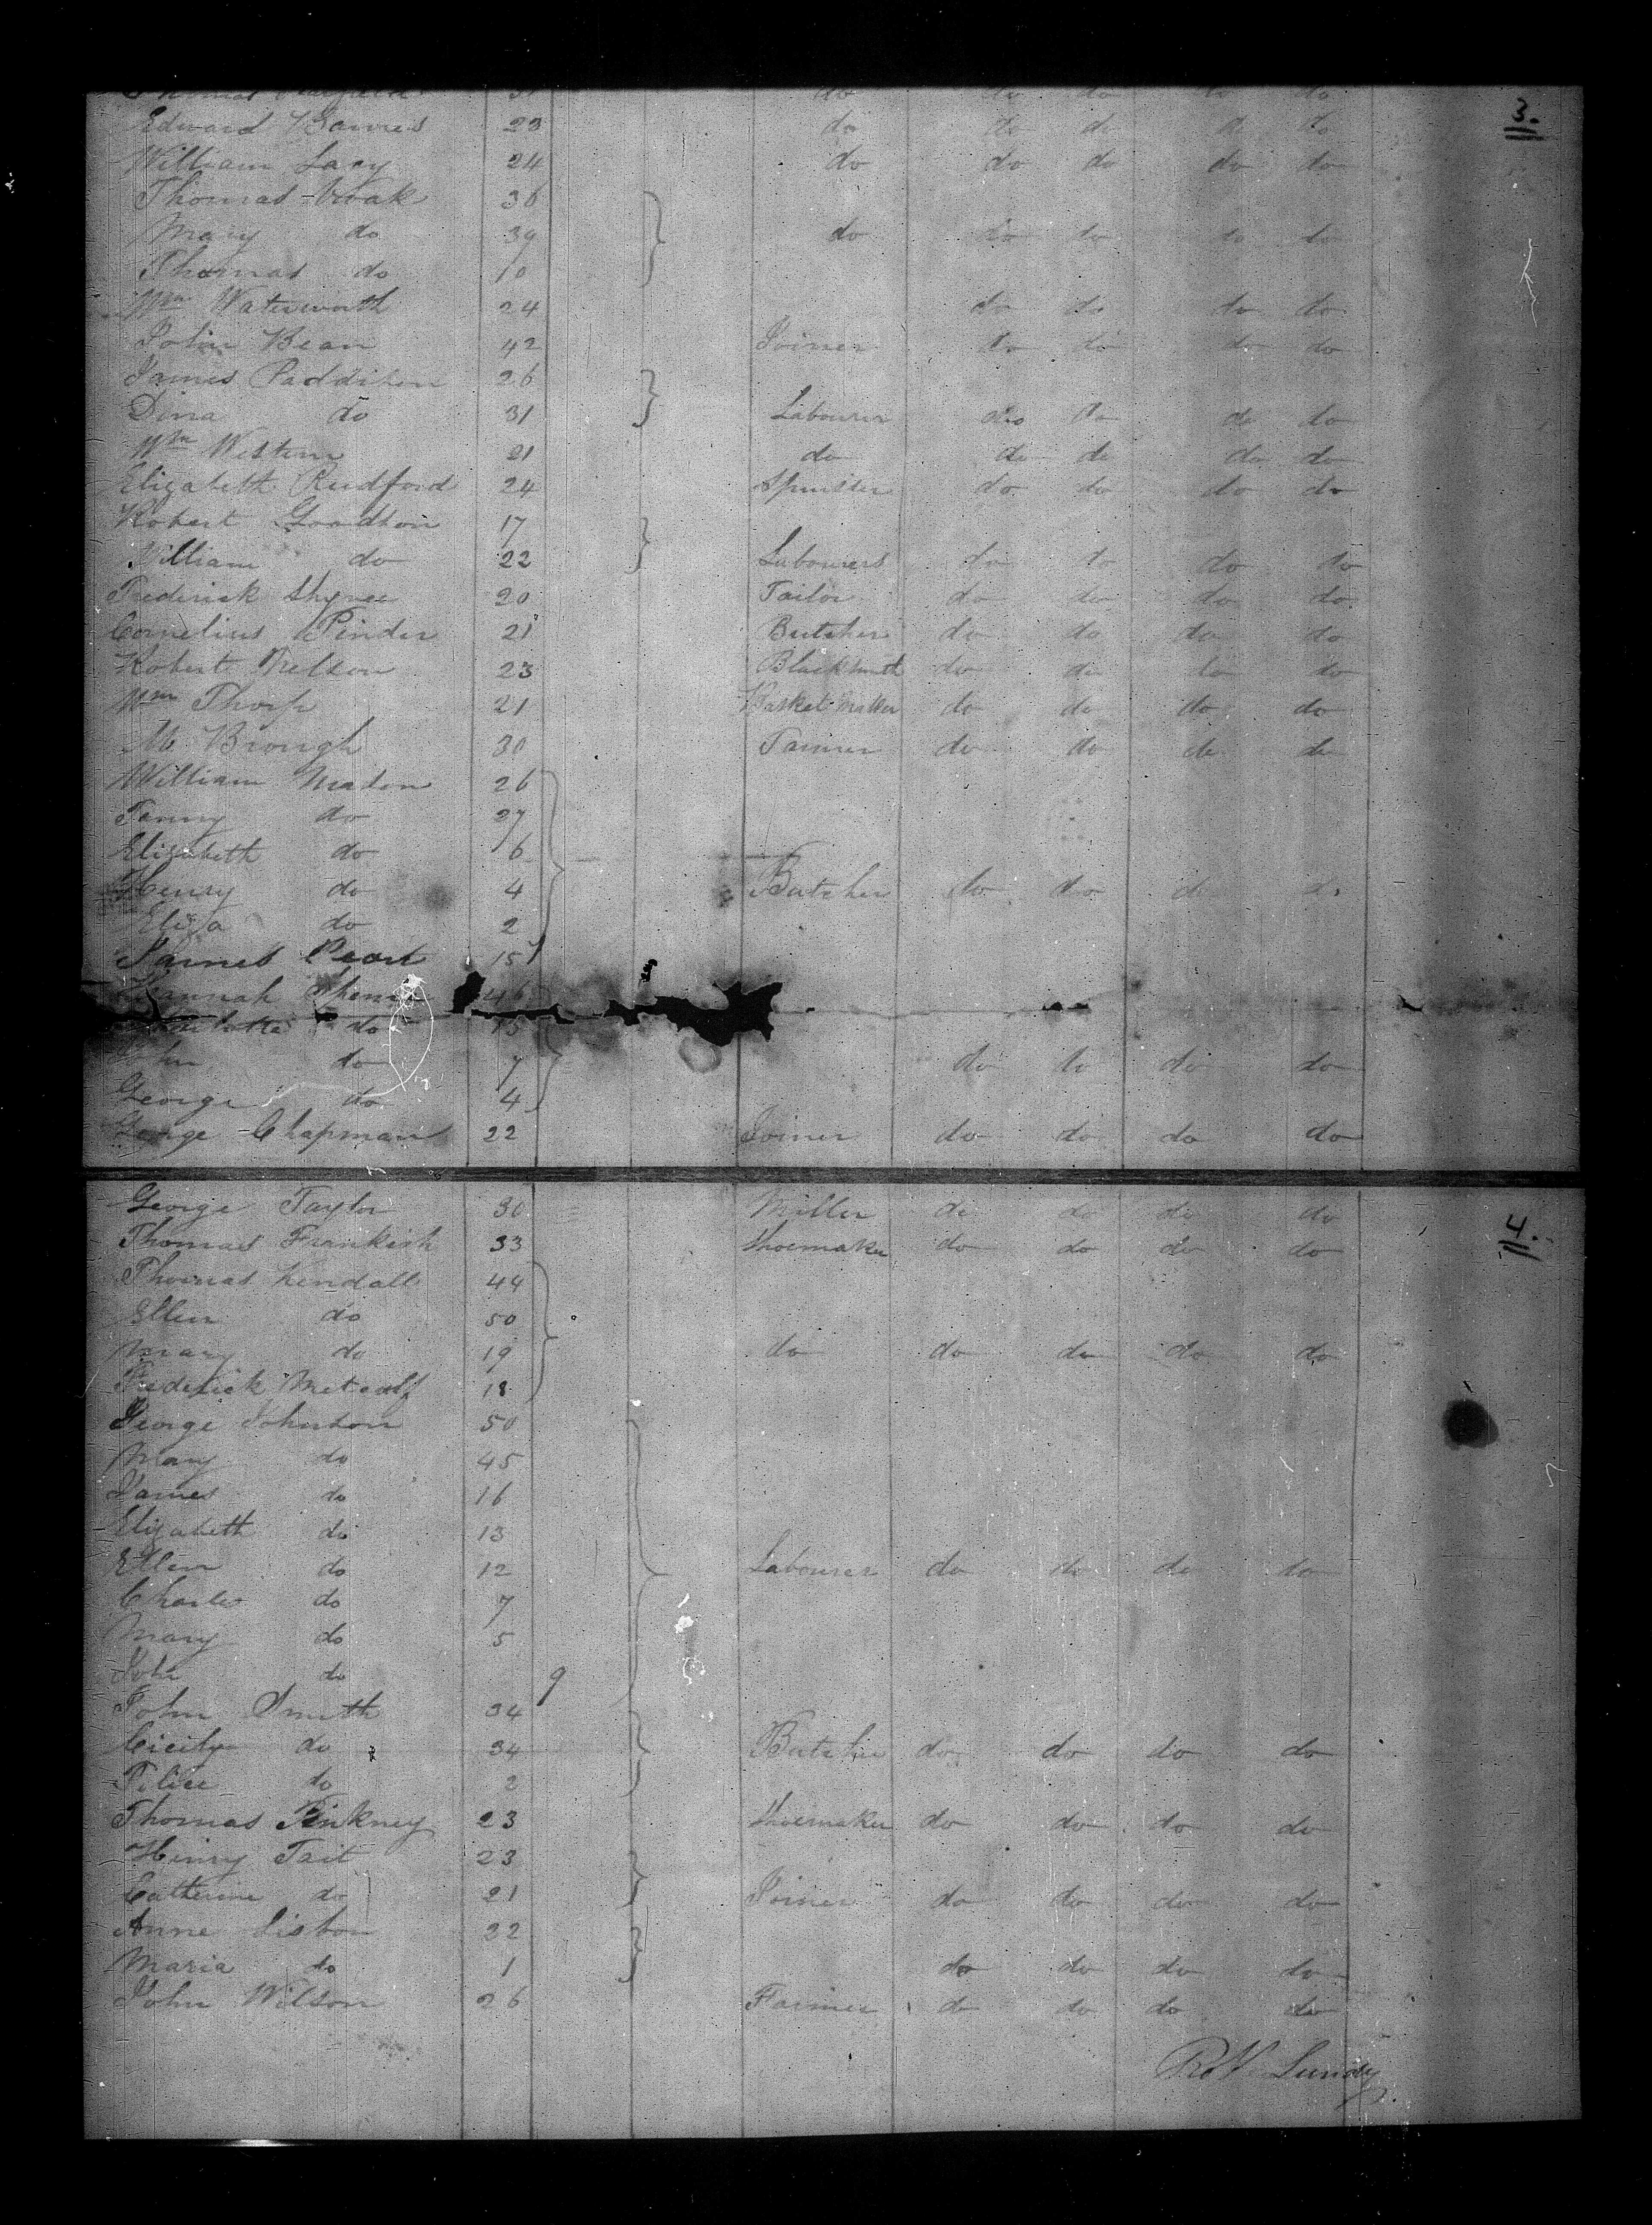 Thomas 31 do do do do do
3.
Edward Bawnes 23 do do do do do
William Lacy 24 do do do do do
Thomas Croak 36
Mary do 39 do do do do do
Thomas do 10
Wm Waterworth 24 do do do do
John Bean 42 Joiner do do do do
James Paddison 26
Dina do 31 Labourer do do do do
Wm Western 21 do do do do do
Elizabeth Rudford 24 Spinster do do do do
Robert Goodson 17
William do 22 Labourers do do do do
Frederick 20 Tailor do do do do
Cornelius Pinder 21 Butcher do do do do
Robert Nelson 23 Blacksmith do do do do
Wm Thorp 21 Basket Maker do do do do
M Brough 30 Farmer do do do do
William Mason 26
Fanny do 27
Elizabeth do 6
Henry do 4 Butcher do do do do
Eliza do 2
James Pearl 15
Hannah 46
do 15
John do 7 do do do do
George do 4
George Chapman 22 Joiner do do do do
George Taylor 30 Miller do do do do
4.
Thomas Frankish 33 Shoemaker do do do do
Thomas Kendall 44
Ellen do 50
Mary do 19 do do do do do
Frederick Metcalf 18
George Johnson 50
Mary do 45
James do 16
Elizabeth do 13
Ellen do 12 Labourer do do do do
Charles do 7
Mary do 5
John do 9
John Smith 34
Cicily do 34 Butcher do do do do
do 2
Thomas Pinkney 23 Shoemaker do do do do
Henry Tait 23
Catherine do 21 Joiner do do do do
Anne Lisbon 22
Maria do 1 do do do do
John Wilson 26 Farmer do do do do
Lundy